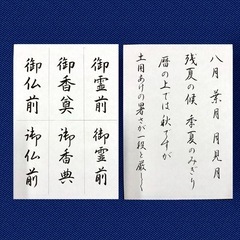 八月 葉月 月見月
残夏の候 季夏のみぎり
暦の上では秋ですが
土用あけの暑さが一段と厳しく
御霊前
御香奠
御仏前
御霊前
御香典
御仏前